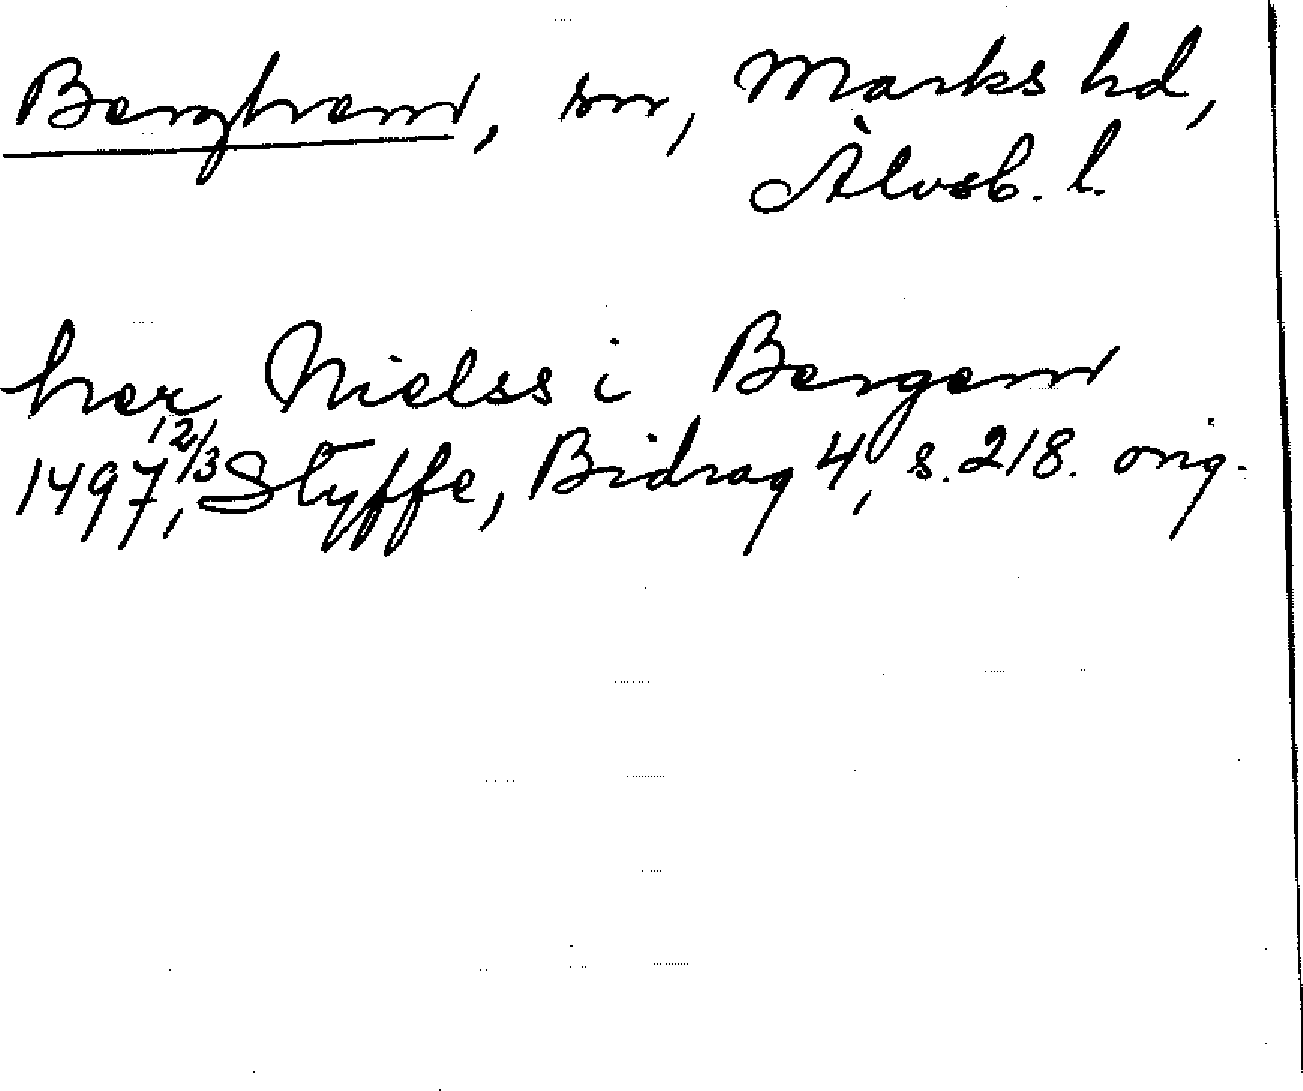 Berghem, sn, Marks hd,
Älvsb. l.
her Nielss i Bergem
1497 12/3, Styffe, Bidrag 4, s. 218. orig.